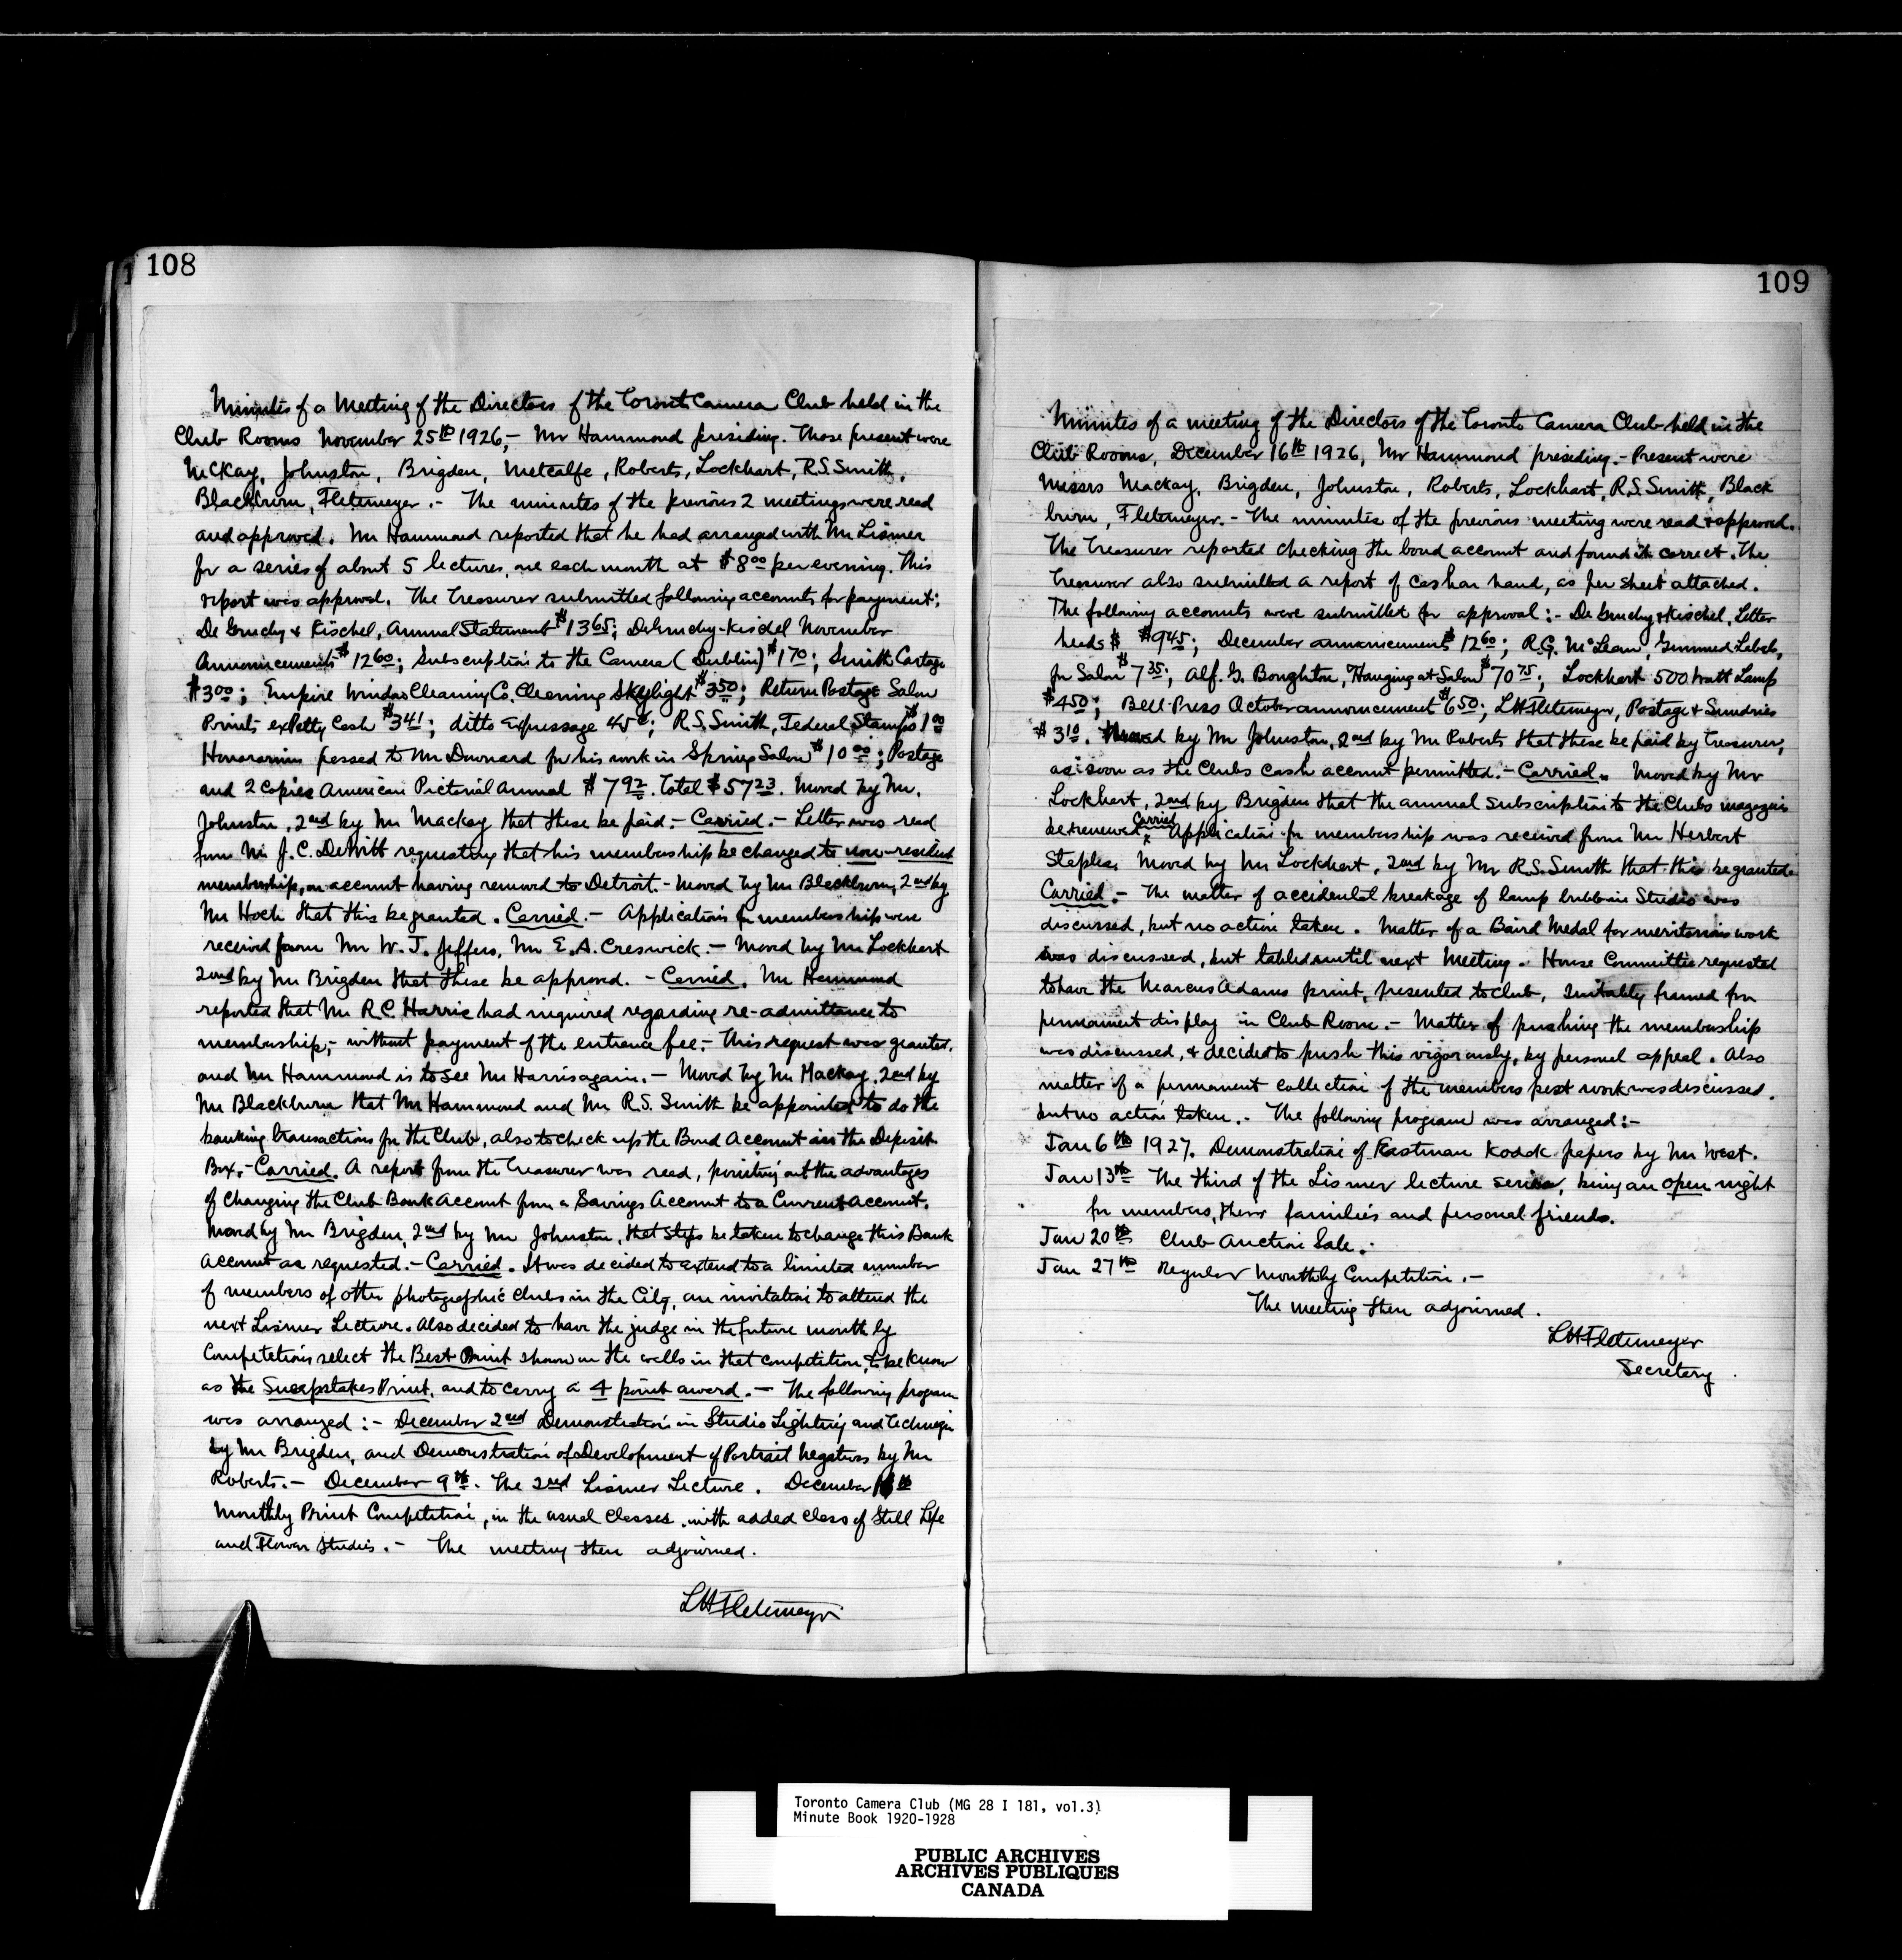 108
Minutes of a Meeting of the Directors of the Toronto Camera Club held in the
Club Rooms November 25th 1926,- Mr Hammond presiding. Those present were
McKay, Johnston, Brigden, Metcalfe, Roberts, Lockhart, R.S. Smith,
Blackburn, Fletemeyer.- The minutes of the previous 2 meetings were read
and approved. Mr Hammond reported that he had arranged with Mr Lismer
for a series of about 5 lectures, one each month at $8.00 per evening. This
report was approved. The Treasurer submitted following accounts for payment;
De Gruchy & Kischel, Annual Statement $13.65; DeGruchy-Kischel November
Announcements $12.60; Subscription to the Camera (Dublin) $1.70; Smith Cartage
$3.00; Empire Window Cleaning Co. Cleaning Skylight $3.50; Return Postage Salon
Prints ex Petty Cash $3.41; ditto Expressage 45¢; R.S. Smith, Federal Stamps $1.00
Honorarium passed to Mr Downard for his work in Spring Salon $10.00; Postage
and 2 Copies American Pictorial Annual $7.92. Total $57.23. Moved by Mr.
Johnston, 2nd by Mr Mackay that these be paid.- Carried.- Letter was read
from Mr J.C. DeWitt requesting that his membership be changed to non-resident
membership, on account having removed to Detroit.- Moved by Mr Blackburn, 2nd by
Mr Hoch that this be granted. Carried.- Applications for membership were
received from Mr W.J. Jeffers, Mr E.A. Creswick.- Moved by Mr Lockhart
2nd by Mr Brigden that these be approved.- Carried. Mr Hammond
reported that Mr R.C. Harris had inquired regarding re-admittance to
membership,- without payment of the entrance fee.- This request was granted.
and Mr Hammond is to see Mr Harris again.- Moved by Mr Mackay, 2nd by
Mr Blackburn that Mr Hammond and Mr R.S. Smith be appointed to do the
banking transactions for the Club, also to check up the Bond Account in the Deposit
Box.- Carried. A report from the Treasurer was read, pointing out the advantages
of changing the Club Bank Account from a Savings Account to a Current Account.
Moved by Mr Brigden, 2nd by Mr Johnston, that steps be taken to change this Bank
Account as requested.- Carried. It was decided to extend to a limited number
of members of other photographic clubs in the City, an invitation to attend the
next Lismer Lecture. Also decided to have the judge in the future monthly
Competetions select the Best Print shown on the walls in that competition, to be know
as the Sweepstakes Print, and to carry a 4 point award.- The following program
was arranged :- December 2nd Demonstration in Studio Lighting and Technique
by Mr Brigden, and Demonstration of Development of Portrait Negatives by Mr
Roberts.- December 9th. The 2nd Lismer Lecture. December 16th
Monthly Print Competition, in the usual Classes, with added class of Still Life
and Flower Studies.- The meeting then adjourned.
LH Fletemeyer
109
Minutes of a meeting of the Directors of the Toronto Camera Club held in the
Club Rooms, December 16th 1926, Mr Hammond presiding.- Present were
Messrs Mackay, Brigden, Johnston, Roberts, Lockhart, R.S. Smith, Black
burn, Fletemeyer.- The minutes of the previous meeting were read & approved.
The Treasurer reported checking the bond account and found it correct. The
Treasurer also submitted a report of Cash on hand, as per sheet attached.
The following accounts were submitted for approval :- De Gruchy & Kischel, Letter
heads $ $9.45; December announcement $12.60; R.G. McLean, Gummed Labels,
for Salon $7.35; Alf. G. Boughton, Hanging at Salon $70.75; Lockhart 500 Watt Lamp
$4.50; Bell Press October announcement $6.50; LH Fletemeyer, Postage & Sundries
$3.10. Moved by Mr Johnston, 2nd by Mr Roberts that these be paid by Treasurer,
as soon as the Clubs cash account permitted.- Carried. Moved by Mr
Lockhart, 2nd by Brigden that the annual subscription to the Clubs magazines
be renewed Carried Application for membership was received from Mr Herbert
Staples. Moved by Mr Lockhart, 2nd by Mr R.S. Smith that this be granted.
Carried.- The matter of accidental breakage of lamp bulbs in Studio was
discussed, but no action taken. Matter of a Baird Medal for meritorious work
was discussed, but tabled until next Meeting. House Committee requested
to have the Marcus Adams print, presented to club, suitably framed for
permanent display in Club Room.- Matter of pushing the membership
was discussed, & decided to push this vigorously, by personal appeal. Also
matter of a permanent collection of the members best work was discussed.
but no action taken.- The following program was arranged :-
Jan 6th 1927. Demonstration of Eastman Kodak papers by Mr West.
Jan 13th The third of the Lismer lecture series, being an open night
for members, their families and personal friends.
Jan 20th Club Auction Sale.-
Jan 27th Regular Monthly Competition.-
The meeting then adjourned.
LH Fletemeyer
Secretary
Toronto Camera Club (MG 28 I 181, vol.3)
Minute Book 1920-1928
PUBLIC ARCHIVES
ARCHIVES PUBLIQUES
CANADA